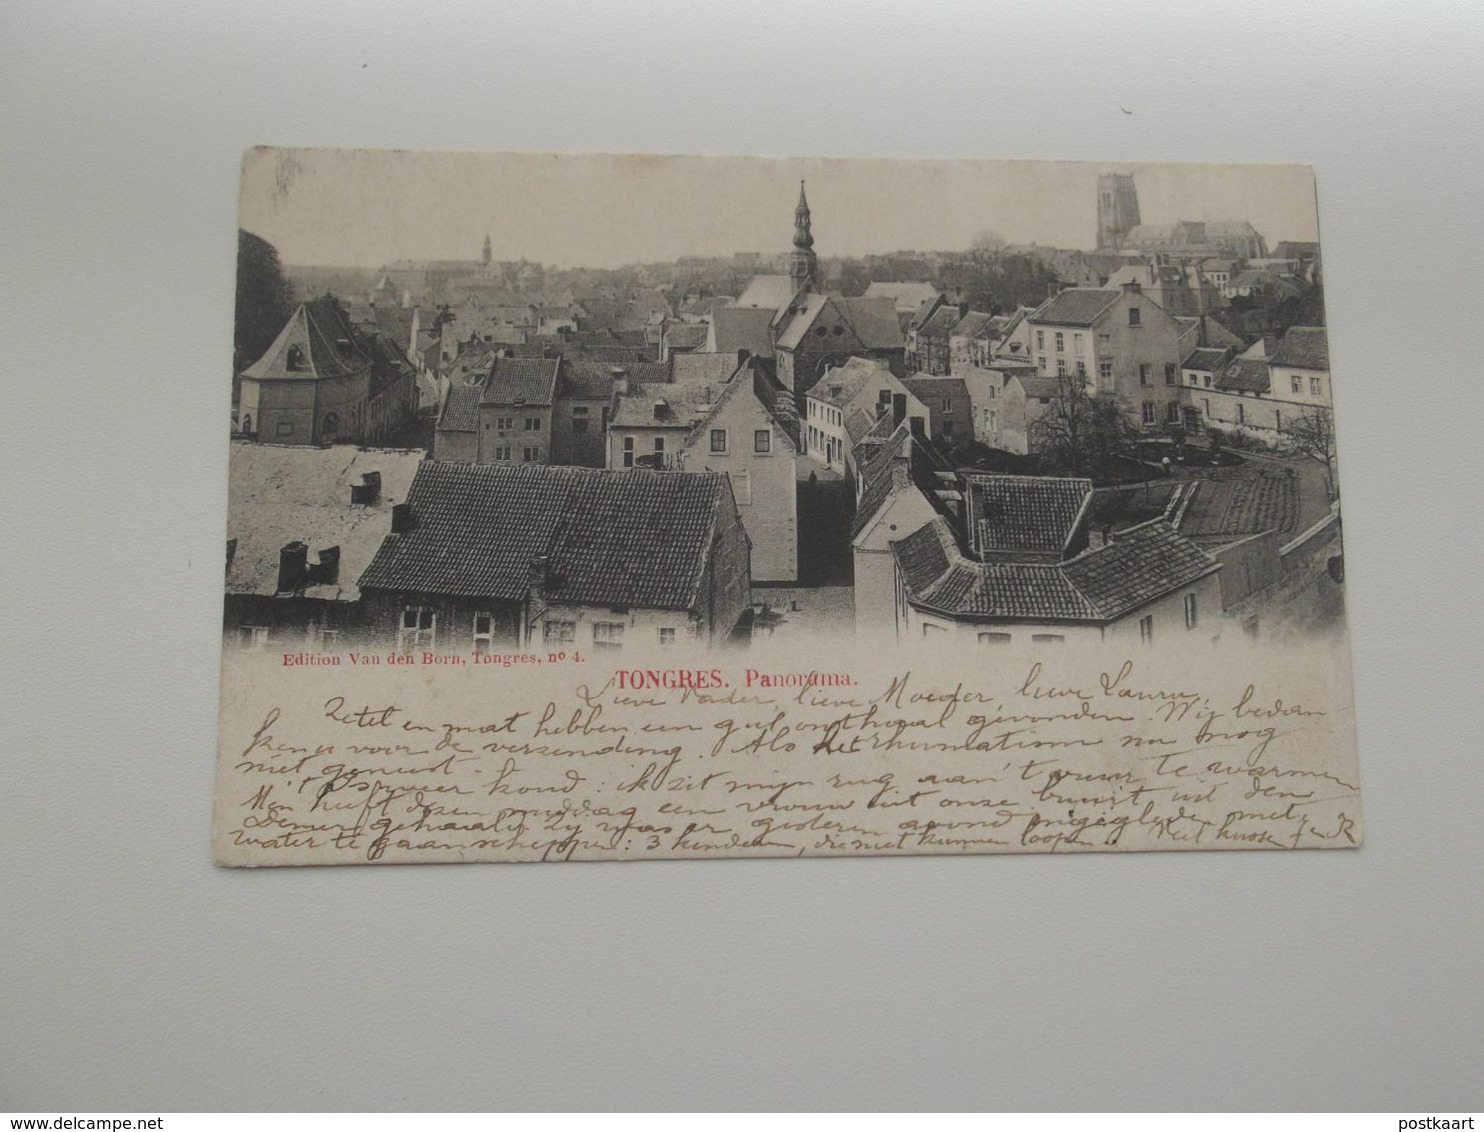 Edition Van den Born, Tongres, nº 4.
TONGRES. Panorama.
Lieve Vader, lieve Moeder, lieve Laura,
Zetel en mat hebben een gul onthaal gevonden. Wij bedan-
ken u voor de verzending. Als het rhumatism nu nog
niet geneest.
't Is weer koud: ik zit mijn rug aan 't vuur te warmen
Men heeft dezen middag een vrouw uit onze buurt uit den
Demer gehaald. Zij was er gisteren avond ingegleden met
water te gaan scheppen: 3 kinderen, die niet kunnen loopen. Veel kussen
delcampe.net
postkaart